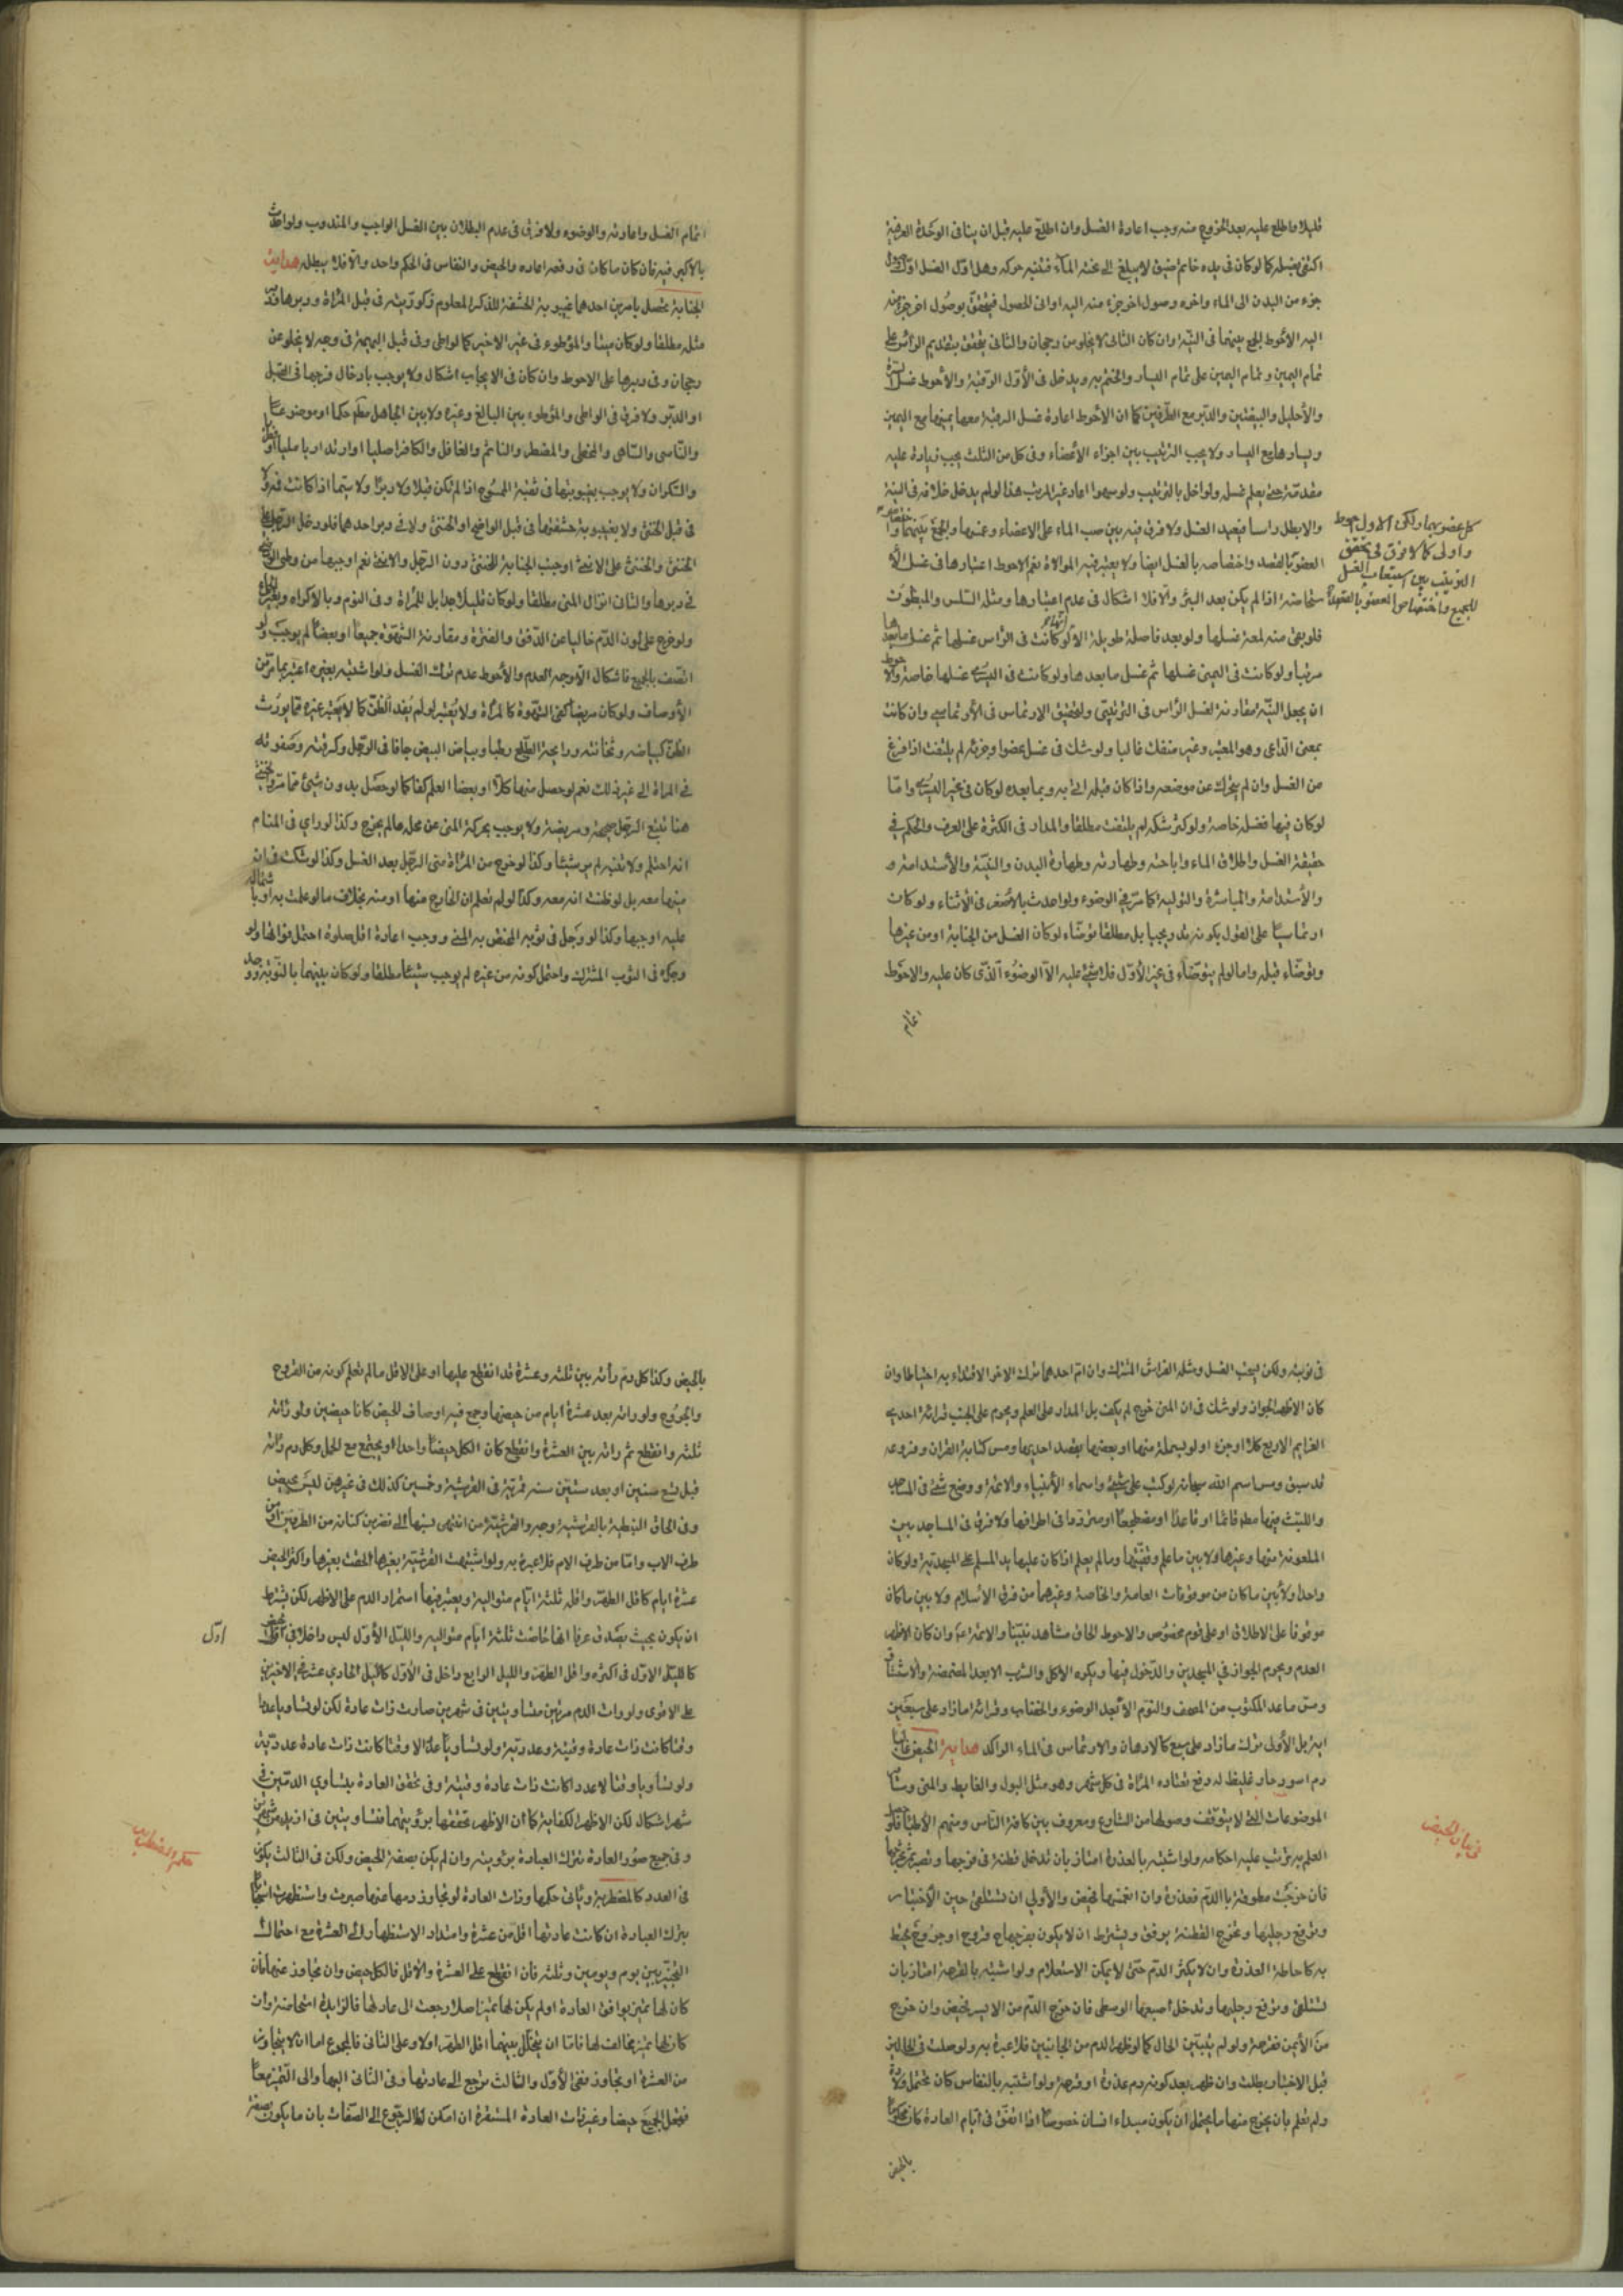 قليلا واطلع عليه بعد الخروج منه وجب اعادة الغسل وان اطلع عليه قبل ان ينافى الوحدة العرفية
اكتفى بغسله كما لو كان فى يده خاتم ضيق لا يبلغ الى تحته المآء فنبه حركه وهل اول الغسل اول
جزء من البدن الى الماء واخره وصول اخر جزء منه اليه او انى الحصول فيتحقق بوصول اخر جزء منه
اليه الأحوط الجمع بينهما فى النية وان كان الثانى لا يخلو من رجحان والثانى يتحقق بتقديم الرأس على
تمام اليمين وتمام اليمين على تمام اليسار والختم به ويدخل فى الأول الرقبة والأحوط غسل السرة
والأحليل والبيضتين والدبر مع الطرفين كما ان الأحوط اعادة غسل الرقبة معها يمينها مع اليمين
ويسارها مع اليسار ولا يجب الترتيب بين اجزاء الأعضاء وفى كل من الثلث يجب زيادة عليه
مقدمة حتى يعلم غسله ولو اخل بالترتيب ولو سهوا اعاد غير المرتب هذا لو لم يدخل خلافه فى النية
والا بطل راسا فيعيد الغسل ولا فرق فيه بين صب الماء على الاعضاء وغمسها والجمع بينهما
العضو بالقصد واختصاصه بالغسل ايضا ولا يعتبر فيه الموالاة نعم الاحوط اعتبارها فى غسل
ستحاضة اذا لم يكن بعد البرء والا فلا اشكال فى عدم اعتبارها ومثله السلس والمبطون
فلو بقى منه لمعة غسلها ولو بعد فاصلة طويلة الا انها لو كانت فى الرأس غسلها ثم غسل ما بعدها
مرتبا ولو كانت فى اليمين غسلها ثم غسل ما بعدها ولو كانت فى اليسرى غسلها خاصة والاحوط
ان يجعل النية مقارنة لغسل الرأس فى الترتيبى ولتحقيق الارتماس فى الأرتماسى وان كانت
بمعنى الداعى وهو المعتبر وغير منفك غالبا ولو شك فى غسل عضو او جزئه لم يلتفت اذا فرغ
من الغسل وان لم يتحرك عن موضعه واذا كان قبله اتى به وبما بعده لو كان فى غير اليسرى واما
لو كان فيها فغسله خاصة ولو كثر شكه لم يلتفت مطلقا والمدار فى الكثرة على العرف والحكم فى
حقيقة الغسل واطلاق الماء واباحته وطهارته وطهارة البدن والنية والأستدامة و
والأستدامة والمباشرة والتولية كما مر فى الوضوء ولو احدث بالأصغر فى الأثناء ولو كان
ارتماسيا على القول بكونه تدريجيا بل مطلقا توضاء لو كان الغسل من الجنابة او من غيرها
وتوضاء قبله واما لو لم يتوضاء فى غير الأول فلا شئ عليه الا الوضوء الذى كان عليه والاحوط
اتمام
كل عضو بها ولكن الاول احوط
واولى كما لا فرق فى تحقق
الترتيب بين استيعاب الغسل
للجميع واختصاص العضو بالقصد
اتمام الغسل واعادته والوضوء ولا فرق فى عدم البطلان بين الغسل الواجب والمندوب ولو احدث
بالاكبر فيه فان كان ما كان فى رفعه اعاده والحيض والنفاس فى الحكم واحد والا فلا يبطل هداية
الجنابة تحصل بامرين احدهما غيبوبة الحشفة للذكر المعلوم ذكوريته فى قبل المرأة ودبرها
مثله مطلقا ولو كان ميتا والمؤطوء فى غير الاخير كالواطى وفى قبل البهيمة فى وجه لا يخلو عن
رجحان وفى دبرها على الاحوط وان كان فى الايجاب اشكال ولا يوجب بادخال فرجها فى القبل
او الدبر ولا فرق فى الواطى والمؤطوء بين البالغ وغيره ولا بين الجاهل مطلقا حكما او موضوعا
والناسى والساهى والمخطى والمضطر والنائم والغافل والكافر اصليا او ارتداديا مليا او فطريا
والسكران ولا يوجب بغيبوبتها فى ثقبة الممسوح اذا لم تكن قبلا ولا دبرا ولا سيما اذا كانت
فى قبل الخنثى ولا بغيبوبة حشفتها فى قبل الواضح او الخنثى ولا فى دبر احدهما فلو دخل الرجل على
الخنثى والخنثى على الانثى اوجبت الجنابة للخنثى دون الرجل والانثى نعم اوجبها من وطى
فى دبرها والثانى انزال المنى مطلقا ولو كان قليلا جدا بل للمرأة وفى النوم وبالاكراه
ولو خرج على لون الدم خاليا عن الدفق والفترة ومقارنة الشهوة جميعا او بعضا لم يوجب ولو
اتصف بالجميع فاشكال الأوجه العدم والأحوط عدم ترك الغسل ولو اشتبه بغيره اعتبر بما مر من
الأوصاف ولو كان مريضا كفى الشهوة كالمرأة ولا يعتبر لو لم يفد الظن كما لا يعتبر غيره مما يورث
الظن كبياضه وثخانته ورايحة الطلع رطبا وبياض البيض جافا فى الرجل وكرقته وصفرته
فى المرأة الى غير ذلك نعم لو حصل منها كلا او بعضا العلم كفا كما لو حصل بدون شئ مما مر
هنا تتبع الرجل صحيحة ومريضة ولا يوجب بحركة المنى عن محله ما لم يخرج وكذا لو راى فى المنام
انه احتلم ولا نتبه لم ير شيئا وكذا لو خرج من المرأة منى الرجل بعد الغسل وكذا لو شكت فى انه
منها معه بل لو ظنت انه معه وكذا لو لم تعلم ان الخارج منها او منه بخلاف ما لو علمت به
عليه اوجبها وكذا لو وجد فى ثوبه المختص به المنى ووجب اعادة كل صلوة احتمل فواتها ولو
وجده فى الثوب المشترك واحتمل كونه من غيره لم يوجب شيئا مطلقا ولو كان بينهما بالنوبة ووجد
فى نوبته ولكن يستحب الغسل ومثله الفراش المشترك وان اتم احدهما ترك الاخر الاقتداء به احتياطا وان
كان الاظهر الجواز ولو شك فى ان المنى خرج لم يكف بل المدار على العلم ويحرم على الجنب قرائة احدى
العزايم الاربع كلا او جزء او لو بسملة منها او بعضها بقصد احديها ومس كتابة القران وفروعه
قد سبق ومس اسم الله سبحانه لو كتب على شئ واسماء الأنبياء والائمة ووضع شئ فى المساجد
واللبث فيها مطلقا قائما او قاعدا او مضطجعا او مترددا فى اطرافها ولا فرق فى المساجد بين
الملعونة منها وغيرها ولا بين ما علم وقفيتها وما لم يعلم اذا كان عليها يد المسلم على المسجدية ولو كان
واحدا ولا بين ما كان من موقوفات العامة والخاصة وغيرهما من فرق الأسلام ولا بين ما كان
موقوفا على الاطلاق او على قوم مخصوص والاحوط الحاق مشاهد نبينا والائمة عم وان كان الاظهر
العدم ويحرم الجواز فى المسجدين والدخول فيها ويكره الأكل والشرب الا بعد المضمضة والاستنشاق
ومس ما عد المكتوب من المصحف والنوم الا بعد الوضوء والخضاب وقرائة ما زاد على سبع
اية بل الأولى ترك ما زاد على سبع كالادهان والارتماس فى الماء الراكد هداية الحيض
دم اسود حار غليظ له دفع تعتاده المرأة فى كل شهر وهو مثل البول والغايط والمنى
الموضوعات التى لا يتوقف وصولها من الشارع ومعروف بين كافة الناس ومنهم الأطباء
العلم به يرتب عليه احكامه ولو اشتبه بالعذرة امتاز بان تدخل قطنة فى فرجها وتصبر ثم تخرجها
فان خرجت مطوقة بالدم فعذرة وان انغمستها فحيض والأولى ان تستلقى حين الأختبار
وترفع رجليها وتخرج القطنة برفق ويشترط ان لا يكون بفرجها قروح او جروح تحيط
به كاحاطة العذرة وان لا يكثر الدم حتى لا يمكن الاستعلام ولو اشتبه بالقرحة امتاز بان
تستلقى وترفع رجليها وتدخل اصبعها الوسطى فان خرج الدم من الايسر فحيض وان خرج
من الأيمن فقرحة ولو لم يتبين الحال كما لو ظهر الدم من الجانبين فلا عبرة به ولو صلت فى الحالين
قبل الاختبار بطلت وان ظهر بعد كونه دم عذرة او قرحة ولو اشتبه بالنفاس كان تحتمل ولادة
ولم تعلم بان يخرج منها ما يحتمل ان يكون مبداء انسان خصوصا اذا اتفق فى ايام العادة
بالحيض
فى بيان الحيض
بالحيض وكذا كل دم رأته بين ثلثة وعشرة قد انقطع عليها او على الاقل ما لم تعلم كونه من القروح
والجروح ولو راته بعد عشرة ايام من حيضها وجمع فيه اوصاف الحيض كانا حيضين ولو راته
ثلثة وانقطع ثم راته بين العشرة وانقطع كان الكل حيضا واحدا ويجتمع مع الحمل وكل دم راته
قبل تسع سنين او بعد ستين سنة قمرية فى القرشية وخمسين كذلك فى غيرهن ليس بحيض
وفى الحاق النبطية بالقرشية وجه والقرشية من انتهى نسبها الى نضر بن كنانة من الطرفين او من
طرف الاب واما من طرف الام فلا عبرة به ولو اشتبهت القرشية بغيرها الحقت بغيرها واكثر الحيض
عشرة ايام كاقل الطهر واقله ثلثة ايام متوالية ويعتبر فيها استمرار الدم على الاظهر لكن يشترط
ان يكون بحيث يصدق عرفا انها حاضت ثلثة ايام متوالية والليل الأول ليس داخلا فى اقل
كالليل الاول فى اكثره واقل الطهر والليل الرابع داخل فى الأول كالليل الحادى عشر فى الاخيرين
على الاقوى ولو رات الدم مرتين متساويتين فى شهرين صارت ذات عادة لكن لو تساويا عددا
وقتا كانت ذات عادة وقتية وعددية ولو تساويا عددا لا وقتا كانت ذات عادة عددية
ولو تساويا وقتا لا عددا كانت ذات عادة وقتية وفى تحقق العادة بتساوى الدمين فى
شهر اشكال لكن الاظهر الكفاية كما ان الاظهر تحققها برؤيتهما متساويتين فى ازيد من شهرين
وفى جميع صور العادة تترك العبادة برؤيته وان لم يكن بصفة الحيض ولكن فى الثالث يكون
فى العدد كالمضطربة وياتى حكمها وذات العادة لو تجاوز دمها عنها صبرت واستظهرت استحبابا
بترك العبادة ان كانت عادتها اقل من عشرة وامتداد الاستظهار الى العشرة مع احتمال
التخيير بين يوم ويومين وثلثة فان انقطع على العشرة والاقل فالكل حيض وان تجاوز عنها فان
كان لها تميز يوافق العادة او لم يكن لها تميز اصلا رجعت الى عادتها فالزايد استحاضة وان
كان لها تميز يخالف لها فاما ان يتخلل بينهما اقل الطهر اولا وعلى الثانى فالمجموع اما ان لا يتجاوز
من العشرة او يتجاوز ففى الأول والثالث ترجع الى عادتها وفى الثانى اليها والى التميز معا
فتجعل الجميع حيضا وغير ذات العادة المستقرة ان امكن لها الرجوع الى الصفات بان ما يكون بصفة
اول
حكم المضطربة